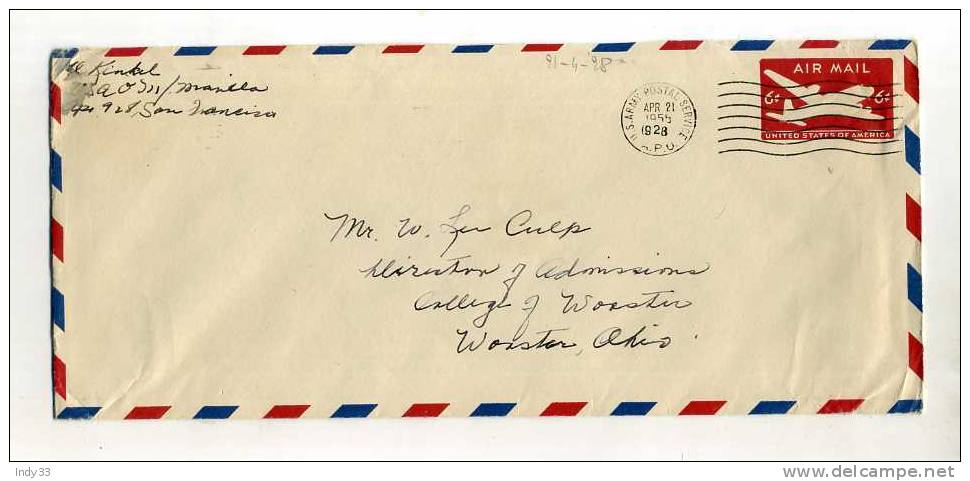 Kinkel
Manila
Apo 928, San Francisco
21-4-28
U.S. ARMY POSTAL SERVICE
APR 21
1955
1928
A.P.O.
AIR MAIL
6¢ 6¢
UNITED STATES OF AMERICA
Mr. W. Lee Culp
Director of Admissions
College of Wooster
Wooster, Ohio.
Indy33
www.delcampe.net